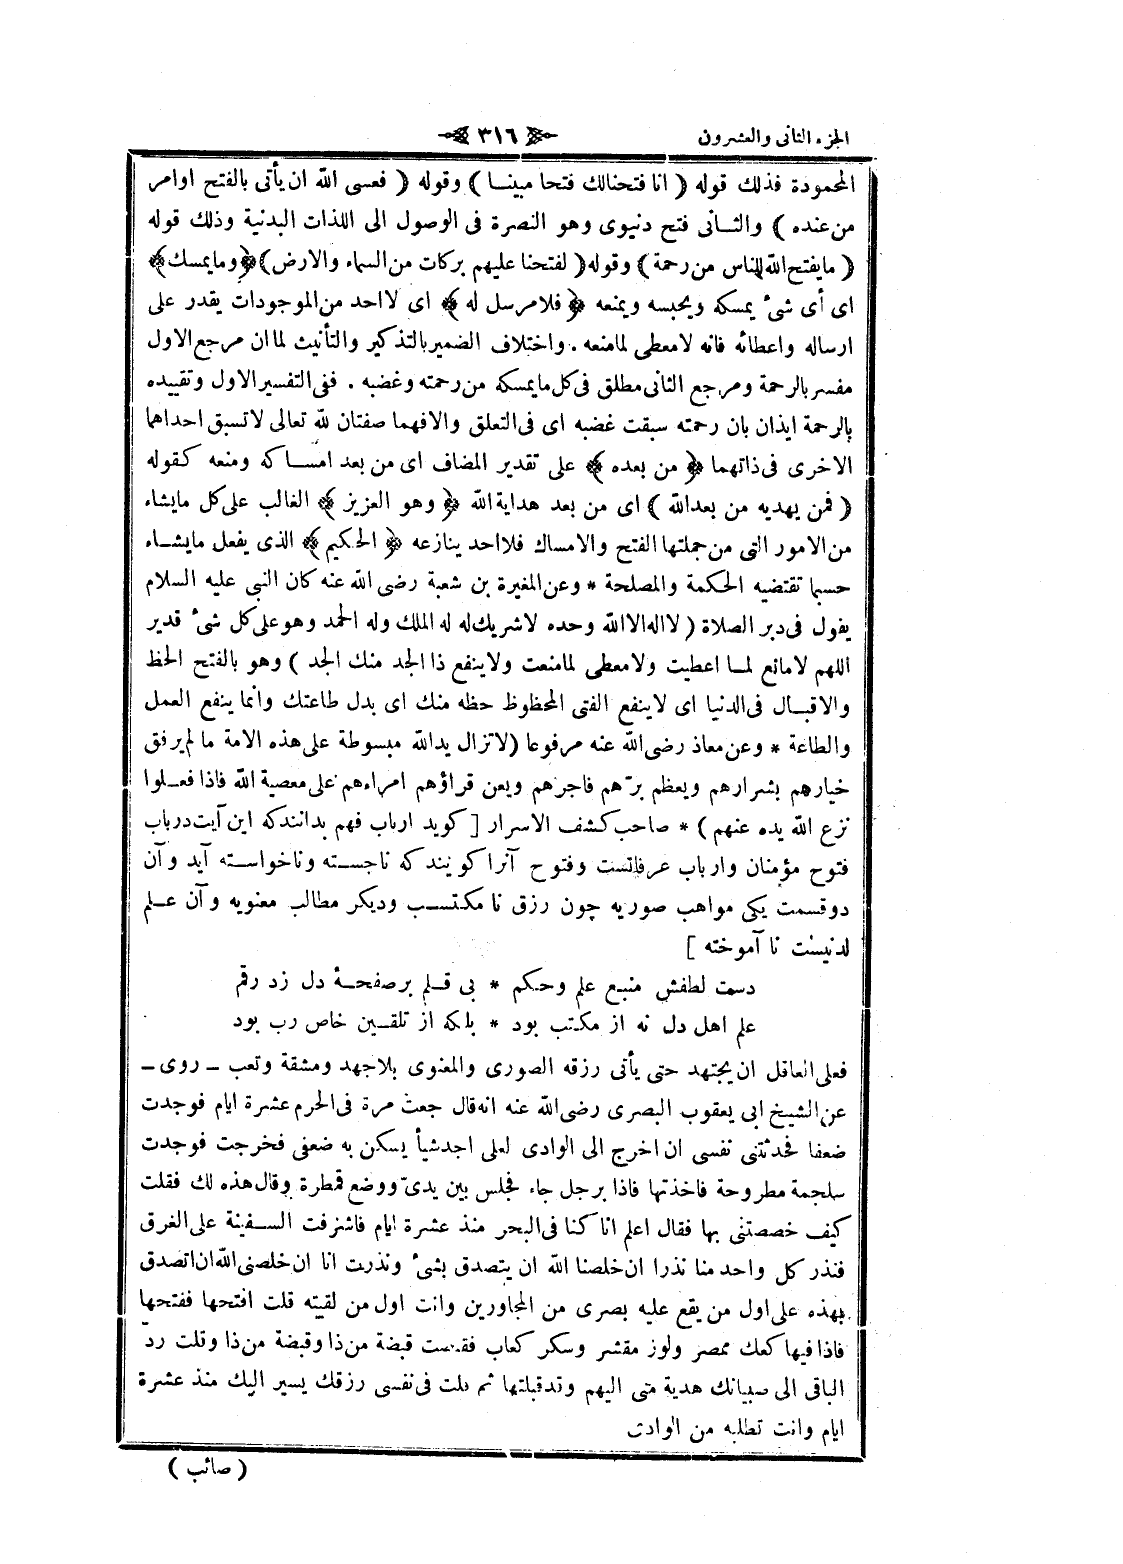 الجزء الثانى والعشرون
٣١٦
المحمودة فذلك قوله ( انا فتحنالك فتحا مبينا ) وقوله ( فعسى الله ان يأتى بالفتح اوامر
من عنده ) والثانى فتح دنيوى وهو النصرة فى الوصول الى اللذات البدنية وذلك قوله
( مايفتح الله للناس من رحمة ) وقوله ( لفتحنا عليهم بركات من السماء والارض ) ﴿ ومايمسك ﴾
اى أى شئ يمسكه ويحبسه ويمنعه ﴿ فلامرسل له ﴾ اى لااحد من الموجودات يقدر على
ارساله واعطائه فانه لامعطى لمامنعه . واختلاف الضمير بالتذكير والتأنيث لماان مرجع الاول
مفسر بالرحمة ومرجع الثانى مطلق فى كل مايمسكه من رحمته وغضبه . ففى التفسير الاول وتقييده
بالرحمة ايذان بان رحمته سبقت غضبه اى فى التعلق والافهما صفتان لله تعالى لاتسبق احداهما
الاخرى فى ذاتهما ﴿ من بعده ﴾ على تقدير المضاف اى من بعد امساكه ومنعه كقوله
( فمن يهديه من بعدالله ) اى من بعد هداية الله ﴿ وهو العزيز ﴾ الغالب على كل مايشاء
من الامور التى من جملتها الفتح والامساك فلااحد ينازعه ﴿ الحكيم ﴾ الذى يفعل مايشاء
حسبما تقتضيه الحكمة والمصلحة * وعن المغيرة بن شعبة رضى الله عنه كان النبى عليه السلام
يقول فى دبر الصلاة ( لااله الاالله وحده لاشريك له له الملك وله الحمد وهو على كل شئ قدير
اللهم لامانع لما اعطيت ولامعطى لمامنعت ولاينفع ذا الجد منك الجد ) وهو بالفتح الحظ
والاقبال فى الدنيا اى لاينفع الفتى المحظوظ حظه منك اى بدل طاعتك وانما ينفع العمل
والطاعة * وعن معاذ رضى الله عنه مرفوعا ( لاتزال يدالله مبسوطة على هذه الامة مالم يرفق
خيارهم بشرارهم ويعظم برّهم فاجرهم ويعن قراؤهم امراءهم على معصية الله فاذا فعلوا
نزع الله يده عنهم ) * صاحب كشف الاسرار [ كويد ارباب فهم بدانندكه اين آيت درباب
فتوح مؤمنان وارباب عرفانست وفتوح آنرا كويند كه ناجسته وناخواسته آيد وآن
دوقسمت يكى مواهب صوريه چون رزق نا مكتسب وديكر مطالب معنويه وآن علم
لدنيست نا آموخته ]
دست لطفش منبع علم وحكم * بى قلم بر صفحۀ دل زد رقم
علم اهل دل نه از مكتب بود * بلكه از تلقين خاص رب بود
فعلى العاقل ان يجتهد حتى يأتى رزقه الصورى والمعنوى بلاجهد ومشقة وتعب ـ روى ـ
عن الشيخ ابى يعقوب البصرى رضى الله عنه انه قال جعت مرة فى الحرم عشرة ايام فوجدت
ضعفا فحدثتنى نفسى ان اخرج الى الوادى لعلى اجد شيأ يسكن به ضعفى فخرجت فوجدت
سلجمة مطروحة فاخذتها فاذا برجل جاء فجلس بين يدىّ ووضع قمطرة وقال هذه لك فقلت
كيف خصصتنى بها فقال اعلم انا كنا فى البحر منذ عشرة ايام فاشرفت السفينة على الغرق
فنذر كل واحد منا نذرا ان خلصنا الله ان يتصدق بشئ ونذرت انا ان خلصنى الله ان اتصدق
بهذه على اول من يقع عليه بصرى من المجاورين وانت اول من لقيته قلت افتحها ففتحها
فاذا فيها كعك ممصر ولوز مقشر وسكر كعاب فقبضت قبضة من ذا وقبضة من ذا وقلت ردّ
الباقى الى صبيانك هدية منى اليهم وقدقبلتها ثم قلت فى نفسى رزقك يسير اليك منذ عشرة
ايام وانت تطلبه من الوادى
( صائب )